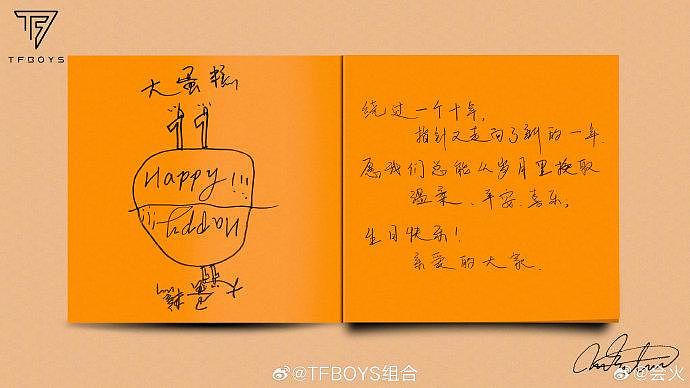 TFBOYS
大蛋糕
Happy!!!
Happy!!!
大蛋糕
绕过一个十年,
指针又走向了新的一年.
愿我们总能从岁月里换取
温柔、平安、喜乐。
生日快乐!
亲爱的大家.
@TFBOYS组合
@会火